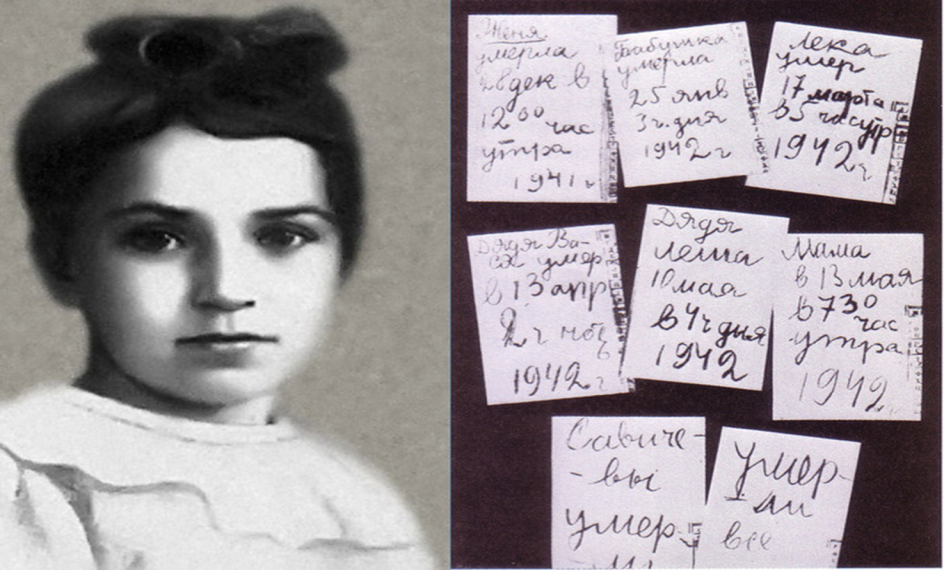 Женя
умерла
28 дек в
12 00 час
утра
1941 г
Бабушка
умерла
25 янв
3 ч. дня
1942 г
Лека
умер
17 марта
в 5 час утр
1942 г
Дядя Ва-
ся умер
в 13 апр
2 ч ноч
1942 г
Дядя
Леша
10 мая
в 4 ч дня
1942
Мама
в 13 мая
в 7 30 час
утра
1942
Савиче-
-вы
умер-
ли
Умер-
ли
все